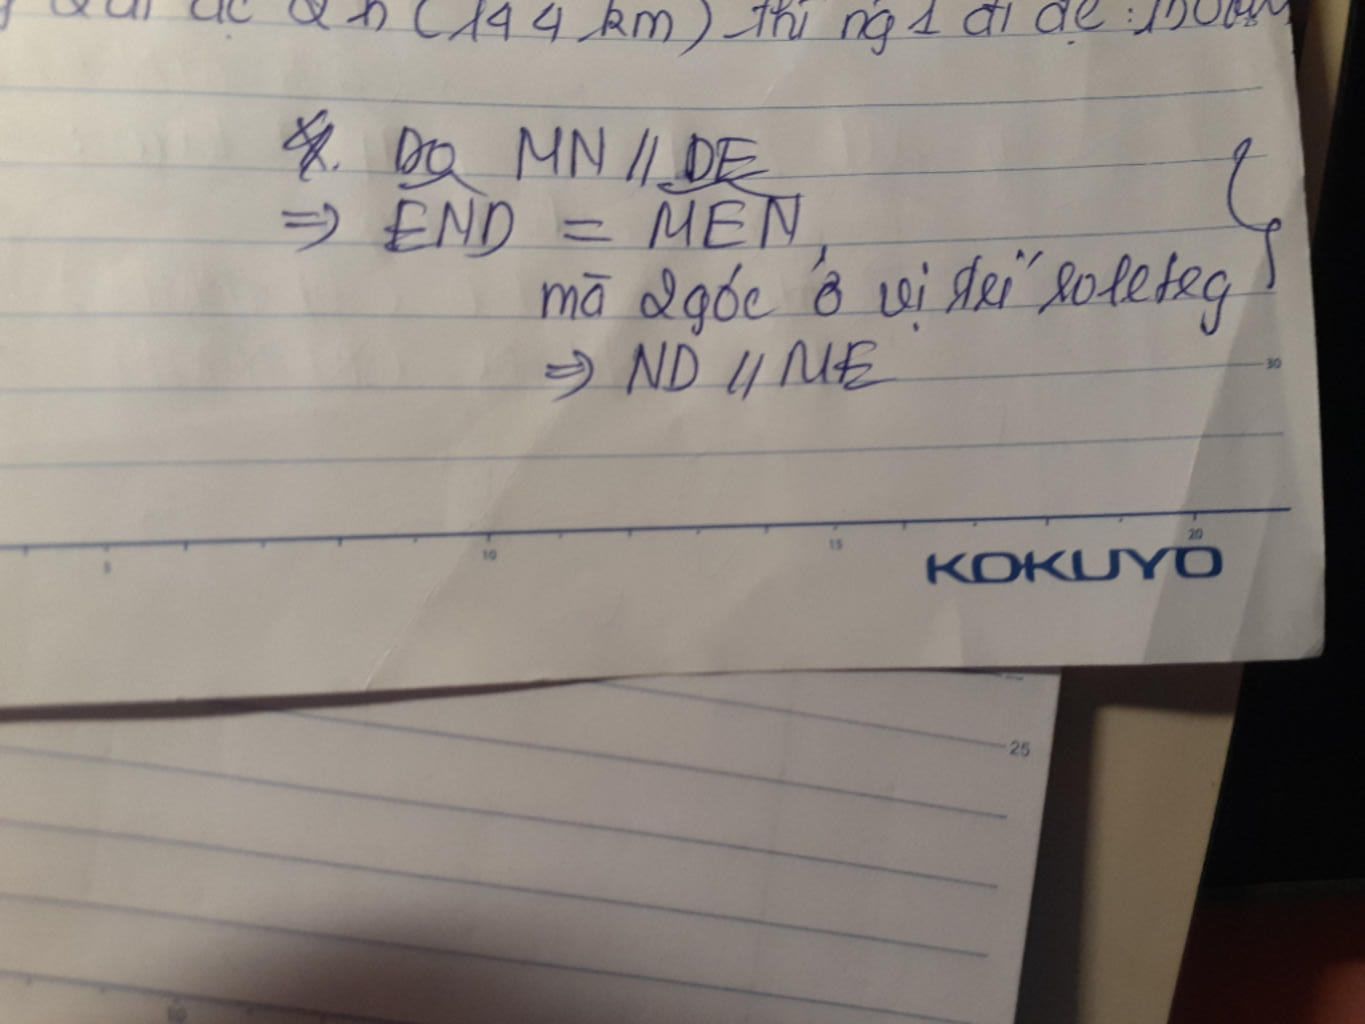 (144 km) thì ng 1 đi
Do MN // DE
⇒ END = MEN,
mà 2 góc ở vị
⇒ ND // ME
30
5 10 15 20
KOKUYO
25